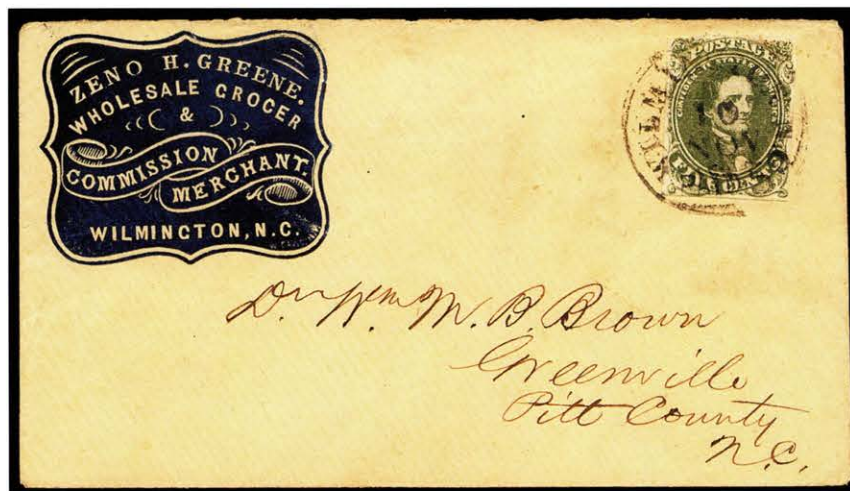 ZENO H. GREENE.
WHOLESALE GROCER
&
COMMISSION
MERCHANT.
WILMINGTON, N.C.
POSTAGE
10
NOV
Dr. Wm. M. B. Brown
Greenville
Pitt County
N.C.